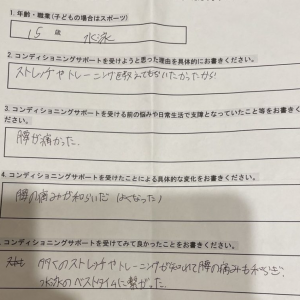 1. 年齢・職業(子どもの場合はスポーツ)
15 歳 水泳
2. コンディショニングサポートを受けようと思った理由を具体的にお書きください。
ストレッチやトレーニングを教えてもらいたかったから
3. コンディショニングサポートを受ける前の悩みや日常生活で支障となっていたこと等をお書きください。
腰が痛かった
4. コンディショニングサポートを受けたことによる具体的な変化をお書きください。
腰の痛みが和らいだ (よくなった)
コンディショニングサポートを受けてみて良かったことをお書きください。
多くのストレッチやトレーニングが知れて腰の痛みも和らぎ、
水泳のベストタイムに繋がった。